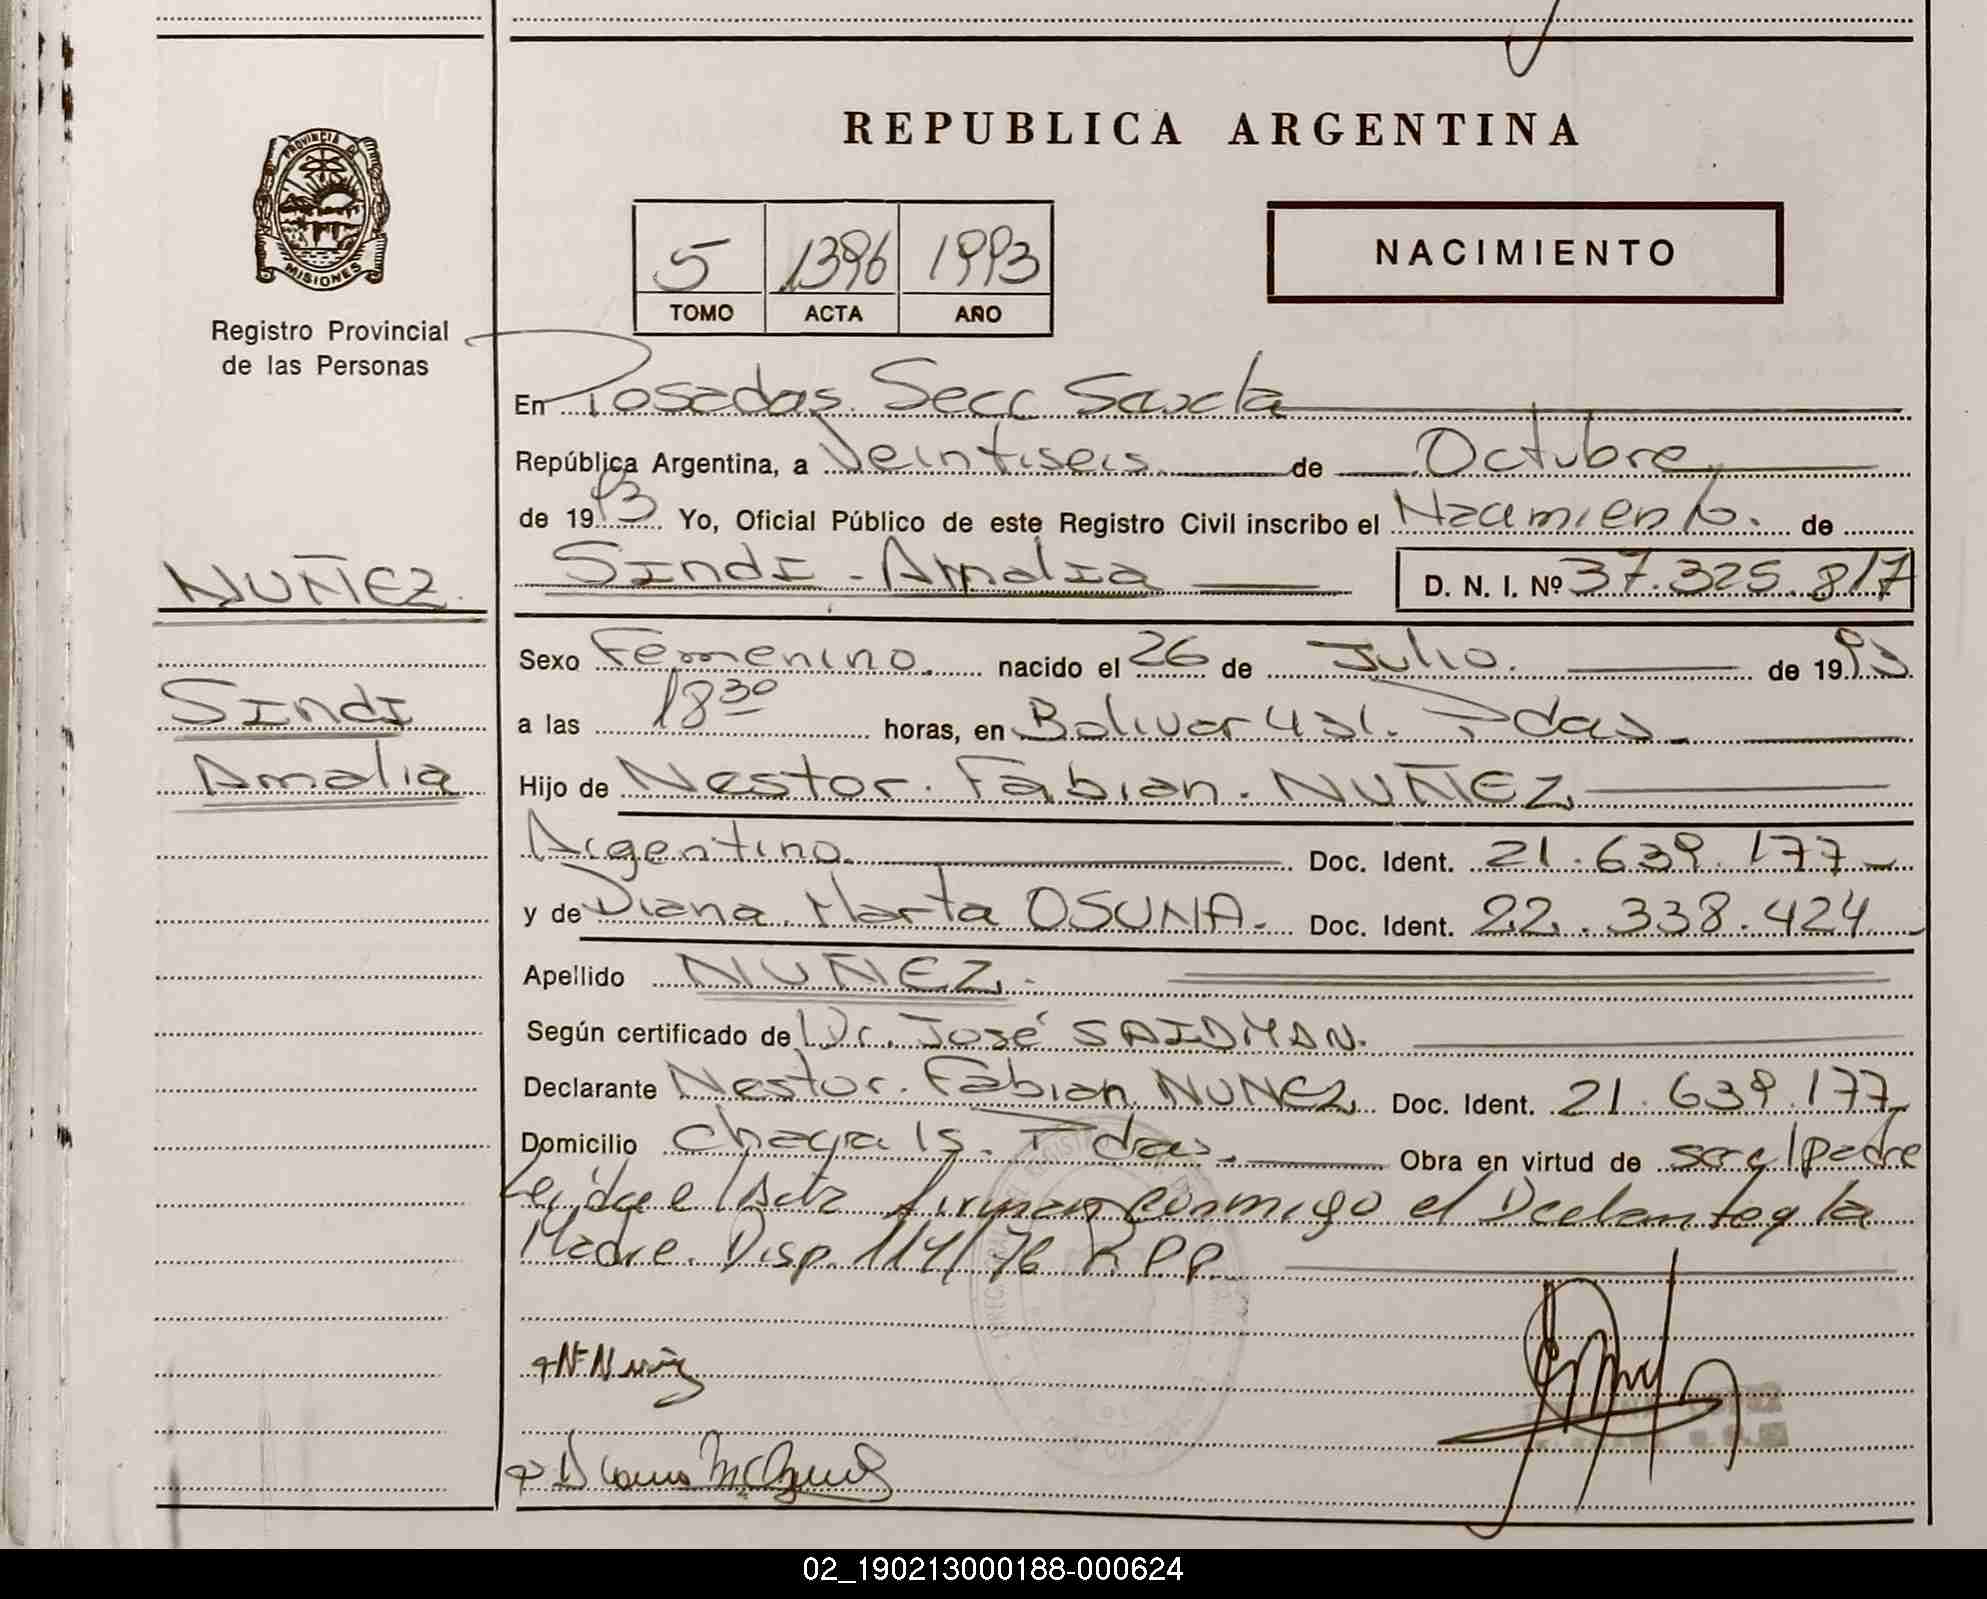 REPUBLICA ARGENTINA
PROVINCIA DE
MISIONES
Registro Provincial
de las Personas
5 1396 1993
TOMO ACTA AÑO
NACIMIENTO
En Posadas. Secc Sexta
República Argentina, a Veintiseis de Octubre
de 1993 Yo, Oficial Público de este Registro Civil inscribo el Nacimiento. de
Sindi - Amalia D. N. I. Nº 37.325.817
NUÑEZ.
Sindi
Amalia
Sexo Femenino. nacido el 26 de Julio. de 1993
a las 18 30 horas, en Bolivar 431. Pdas.
Hijo de Nestor. Fabian. NUÑEZ
Argentino. Doc. Ident. 21.639.177
y de Diana. Marta OSUNA. Doc. Ident. 22.338.424
Apellido NUÑEZ.
Según certificado de Dr. José SAIDMAN.
Declarante Nestor. Fabian NUÑEZ Doc. Ident. 21.639.177
Domicilio Chacra 15. Pdas. Obra en virtud de ser el padre
Leida el Acta firman conmigo el Declarante y la
Madre. Disp. 114/76 R.P.P.
02_190213000188-000624